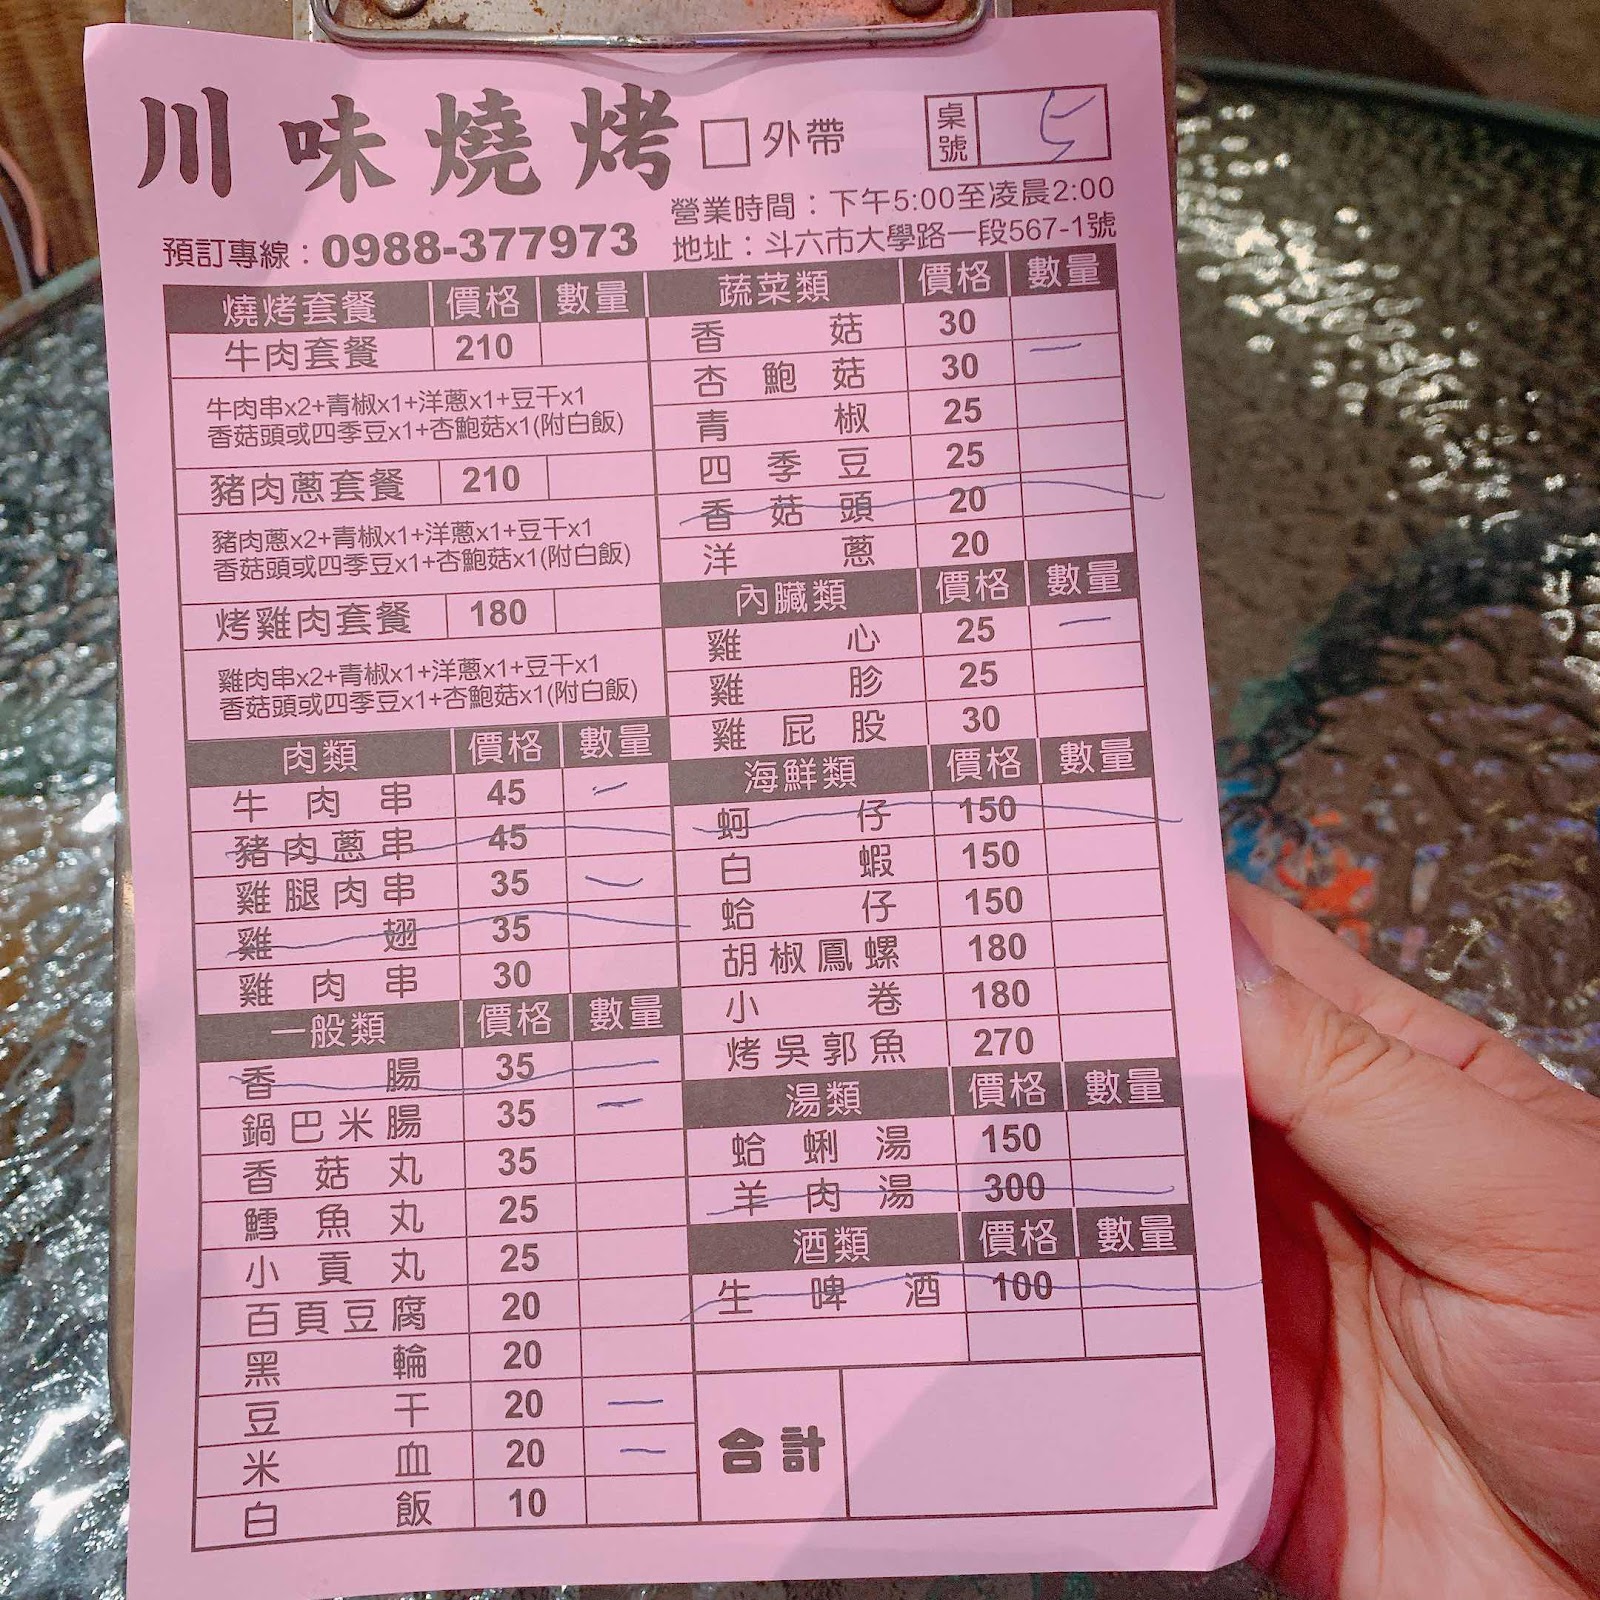 川味燒烤 外帶 桌號 5
預訂專線：0988-377973
營業時間：下午5:00至凌晨2:00
地址：斗六市大學路一段567-1號
燒烤套餐 價格 數量
牛肉套餐 210
牛肉串x2+青椒x1+洋蔥x1+豆干x1
香菇頭或四季豆x1+杏鮑菇x1(附白飯)
豬肉蔥套餐 210
豬肉蔥x2+青椒x1+洋蔥x1+豆干x1
香菇頭或四季豆x1+杏鮑菇x1(附白飯)
烤雞肉套餐 180
雞肉串x2+青椒x1+洋蔥x1+豆干x1
香菇頭或四季豆x1+杏鮑菇x1(附白飯)
肉類 價格 數量
牛肉串 45 一
豬肉蔥串 45
雞腿肉串 35 一
雞翅 35
雞肉串 30
一般類 價格 數量
香腸 35
鍋巴米腸 35 一
香菇丸 35
鱈魚丸 25
小貢丸 25
百頁豆腐 20
黑輪 20
豆干 20 一
米血 20 一
白飯 10
蔬菜類 價格 數量
香菇 30
杏鮑菇 30 一
青椒 25
四季豆 25
香菇頭 20
洋蔥 20
內臟類 價格 數量
雞心 25 一
雞胗 25
雞屁股 30
海鮮類 價格 數量
蚵仔 150
白蝦 150
蛤仔 150
胡椒鳳螺 180
小卷 180
烤吳郭魚 270
湯類 價格 數量
蛤蜊湯 150
羊肉湯 300
酒類 價格 數量
生啤酒 100
合計